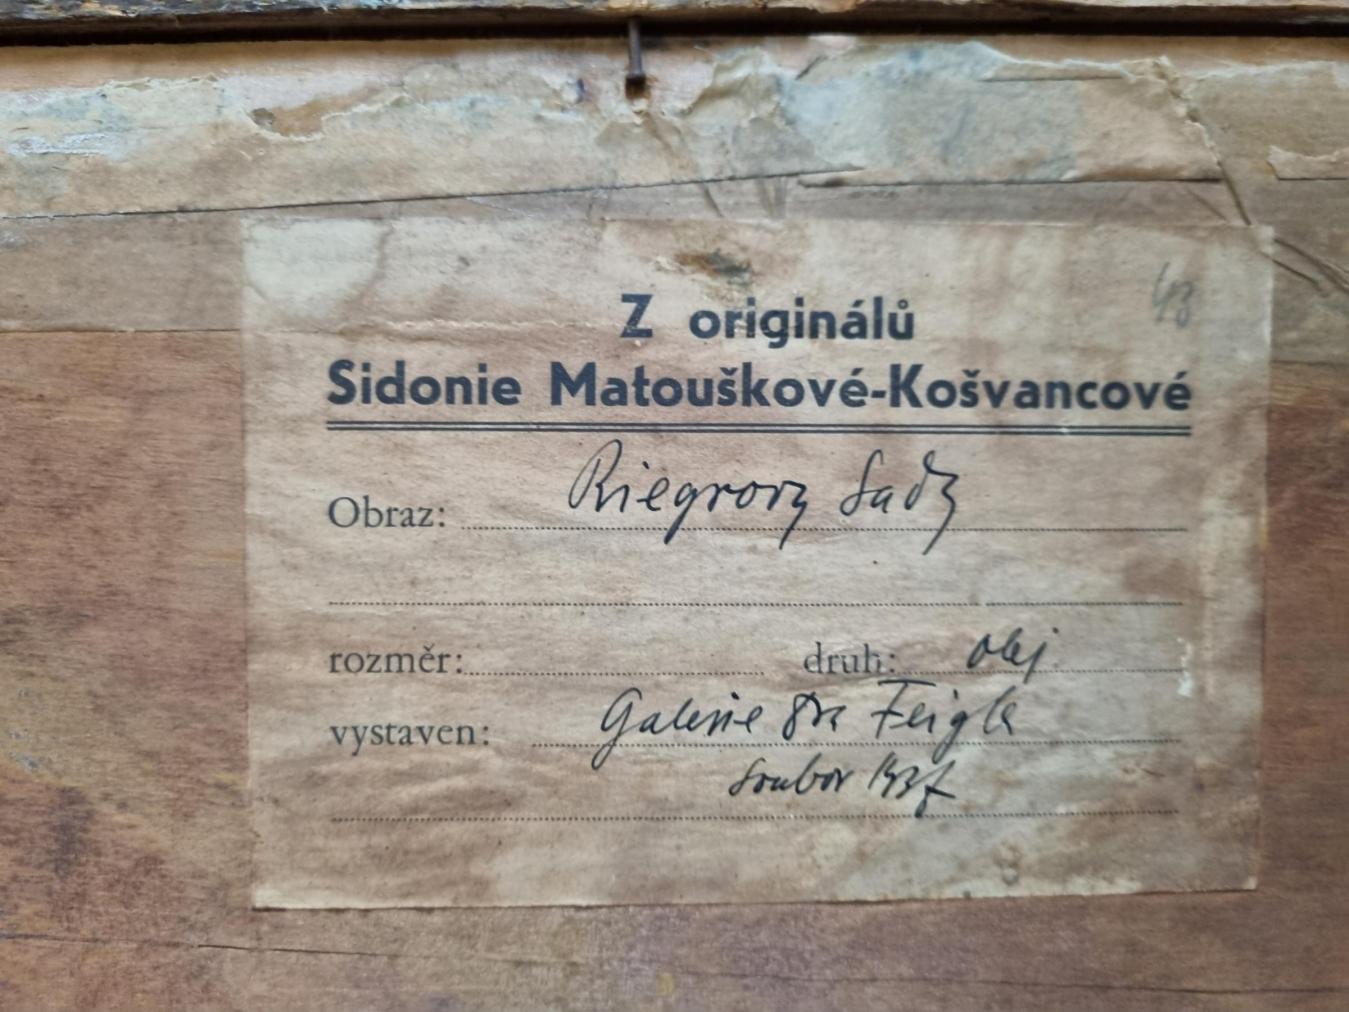 43
Z originálů
Sidonie Matouškové-Košvancové
Obraz: Riegrovy Sady
rozměr: druh: olej
vystaven: Galerie Dra Feigla
soubor 1937